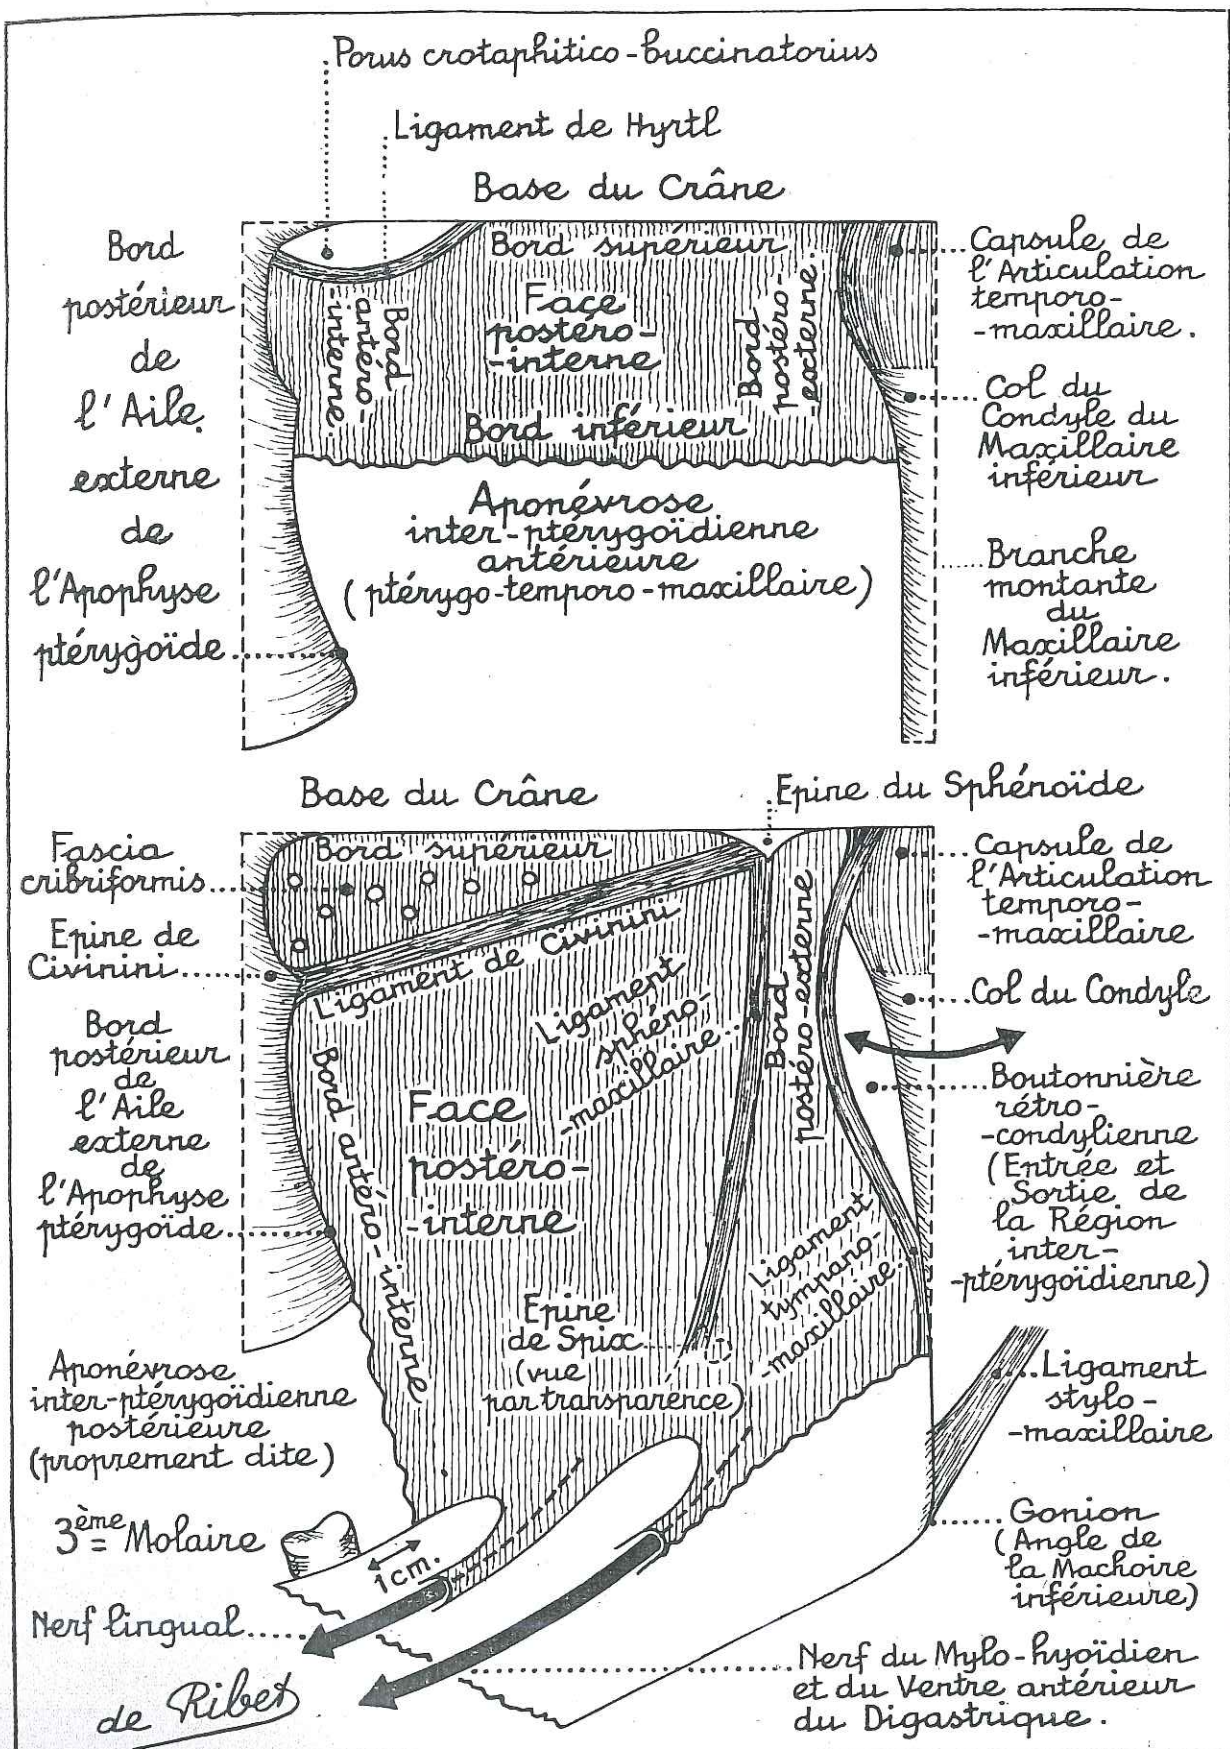 Porus crotaphitico-buccinatorius
Ligament de Hyrtl
Base du Crâne
Bord
postérieur
de
l'Aile
externe
de
l'Apophyse
ptérygoïde
Bord supérieur
Face
postéro-
-interne
Bord
antéro-
-interne.
Bord
postéro-
-externe.
Bord inférieur
Aponévrose
inter-ptérygoïdienne
antérieure
(ptérygo-temporo-maxillaire)
Capsule de
l'Articulation
temporo-
-maxillaire.
Col du
Condyle du
Maxillaire
inférieur
Branche
montante
du
Maxillaire
inférieur.
Base du Crâne
Epine du Sphénoïde
Fascia
cribriformis
Epine de
Civinini
Bord
postérieur
de
l'Aile
externe
de
l'Apophyse
ptérygoïde
Bord supérieur
Ligament de Civinini
Ligament
sphéno-
-maxillaire
Bord
postéro-externe
Bord antéro-interne
Face
postéro-
-interne
Ligament
tympano-
-maxillaire
Epine
de Spix
(vue
par transparence)
Capsule de
l'Articulation
temporo-
-maxillaire
Col du Condyle
Boutonnière
rétro-
-condylienne
(Entrée et
Sortie de
la Région
inter-
-ptérygoïdienne)
Aponévrose
inter-ptérygoïdienne
postérieure
(proprement dite)
Ligament
stylo-
-maxillaire
3ème Molaire
1 cm.
Gonion
(Angle de
la Machoire
inférieure)
Nerf lingual
Nerf du Mylo-hyoïdien
et du Ventre antérieur
du Digastrique.
de Ribet